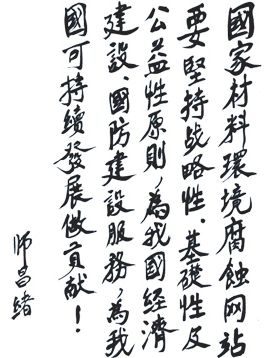 國家材料環境腐蝕网站
要堅持战略性、基礎性及
公益性原則，為我國經濟
建設、國防建設服務，為我
國可持續發展做貢献！
师昌緒